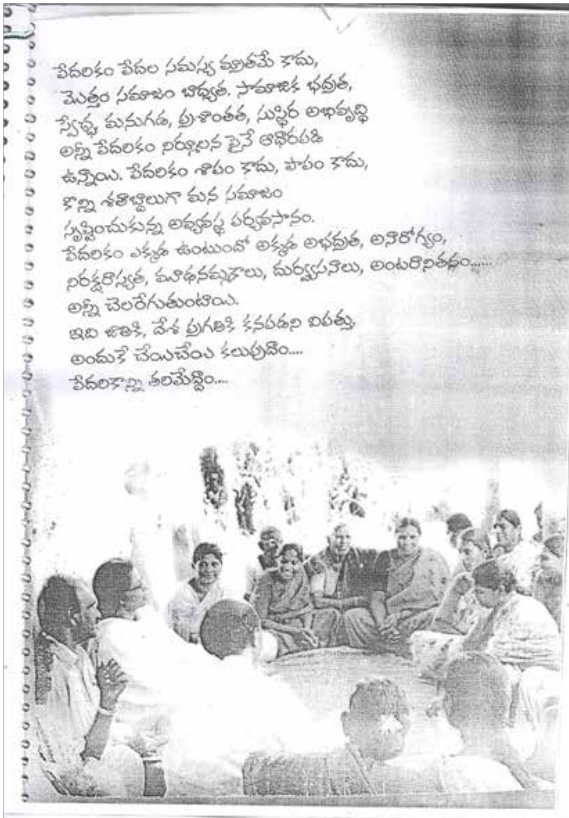 పేదరికం పేదల సమస్య మాత్రమే కాదు,
మొత్తం సమాజం బాధ్యత. సామాజిక భద్రత,
స్వేచ్ఛ, మనుగడ, ప్రశాంతత, సుస్థిర అభివృద్ధి
అన్నీ పేదరికం నిర్మూలన పైనే ఆధారపడి
ఉన్నాయి. పేదరికం శాపం కాదు, పాపం కాదు,
కొన్ని శతాబ్దాలుగా మన సమాజం
సృష్టించుకున్న అవ్యవస్థ పర్యవసానం.
పేదరికం ఎక్కడ ఉంటుందో అక్కడ అభద్రత, అనారోగ్యం,
నిరక్షరాస్యత, మూఢనమ్మకాలు, దుర్వ్యసనాలు, అంటరానితనం......
అన్నీ చెలరేగుతుంటాయి.
ఇది జాతికి, దేశ ప్రగతికి కనపడని విపత్తు.
అందుకే చేయిచేయి కలుపుదాం....
పేదరికాన్ని తరిమేద్దాం....